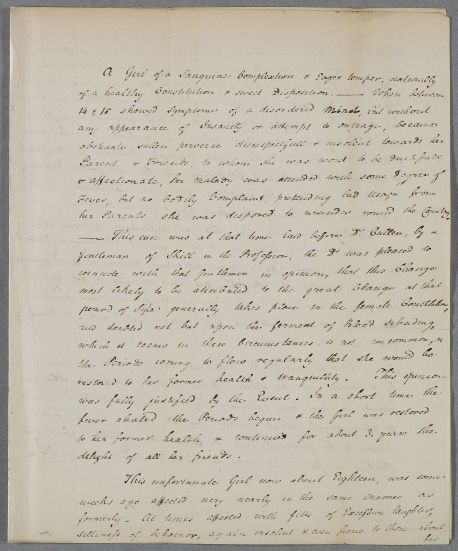 A Girl of a Sanguine Complexion & Eager temper, naturally
of a healthy Constitution & sweet Disposition. — When between
14 & 15 showed Symptoms of a disordered Mind, but without
any appearance of Insanity or attempt to outrage, became
obstinate sullen perverse disrespectfull & insolent towards her
Parent & Friends, to whom she was wont to be dutifull
& affectionate, her malady was attended with some Degree of
Fever, but no bodily Complaint, pretending bad usage from
her Parents she was disposed to wander round the Country
— This case was at that time laid before Dr. Cullen, by a
Gentleman of Skill in the Profession, the Dr was pleased to
coincide with that Gentleman in opinion, that this Change
most likely to be attributed to the great Change at that
period of Life generally takes place in the female Constitution,
and doubted not but upon the ferment of Blood subsiding
which it seems in these Circumstances is not uncommon, &
the Periods coming to flow regularly that she would be
restored to her former health & tranquility. This opinion
was fully justifyed by the Event. In a short time the
fever abated the Periods began & the Girl was restored
to her former health, & continued for about 3. years the
delight of all her friends.
This unfortunate Girl now about Eighteen, was some
weeks ago affected very nearly in the same manner as
formerly. At times affected with fits of Excessive laughter,
silliness of behavior, again insolent & even fierce to those about
her